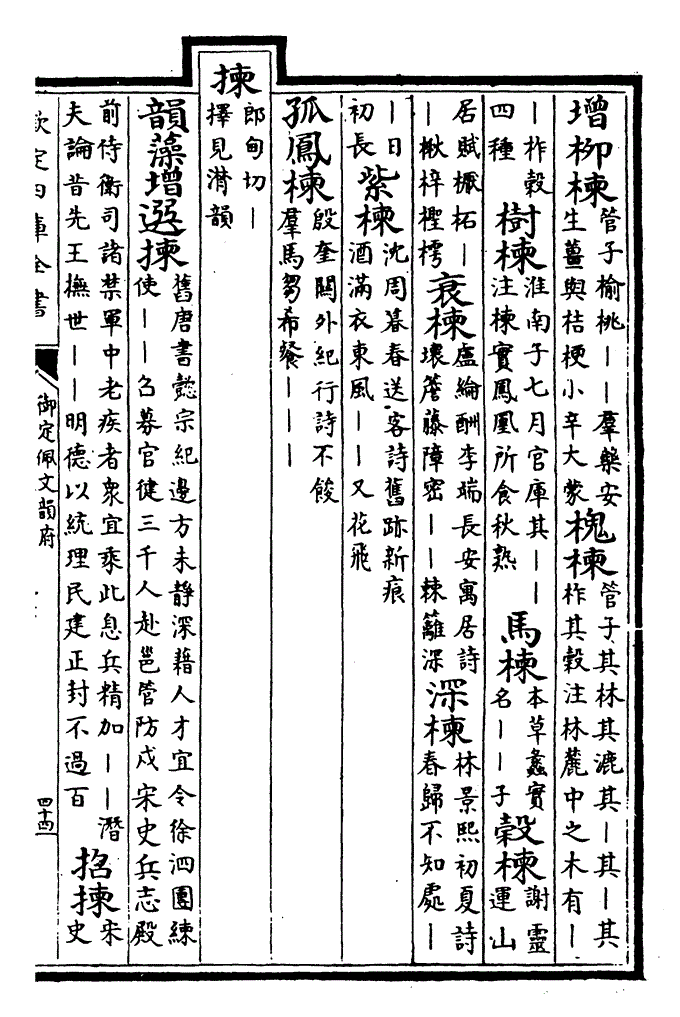 增栁楝管子榆桃丨丨羣藥安生薑與桔梗小辛大蒙槐楝管子其林其漉其丨其丨其柞其榖注林麓中之木有丨
丨柞榖四種樹楝淮南子七月官庫其丨丨注楝實鳳凰所食秋熟馬楝本草蠡實名丨丨子榖楝謝靈運山
居賦榐柘丨丨楸梓檉樗衰楝盧綸酬李端長安寓居詩壞簷藤障密丨丨棘籬深深楝林景熙初夏詩春歸不知處丨
丨日初長紫楝沈周暮春送客詩舊跡新痕酒滿衣東風丨丨又花飛
孤鳳楝殷奎關外紀行詩不餕羣馬芻希餐丨丨丨
揀郎甸切丨擇見濳韻
韻藻增選揀舊唐書懿宗紀邊方未靜深藉人才宜令徐泗團練使丨丨召募官健三千人赴邕管防戍宋史兵志殿
前侍衛司諸禁軍中老疾者衆宜乘此息兵精加丨丨潛夫論昔先王撫世丨丨明德以統理民建正封不過百招揀宋史
欽定四庫全書
御定佩文韻府
四十四